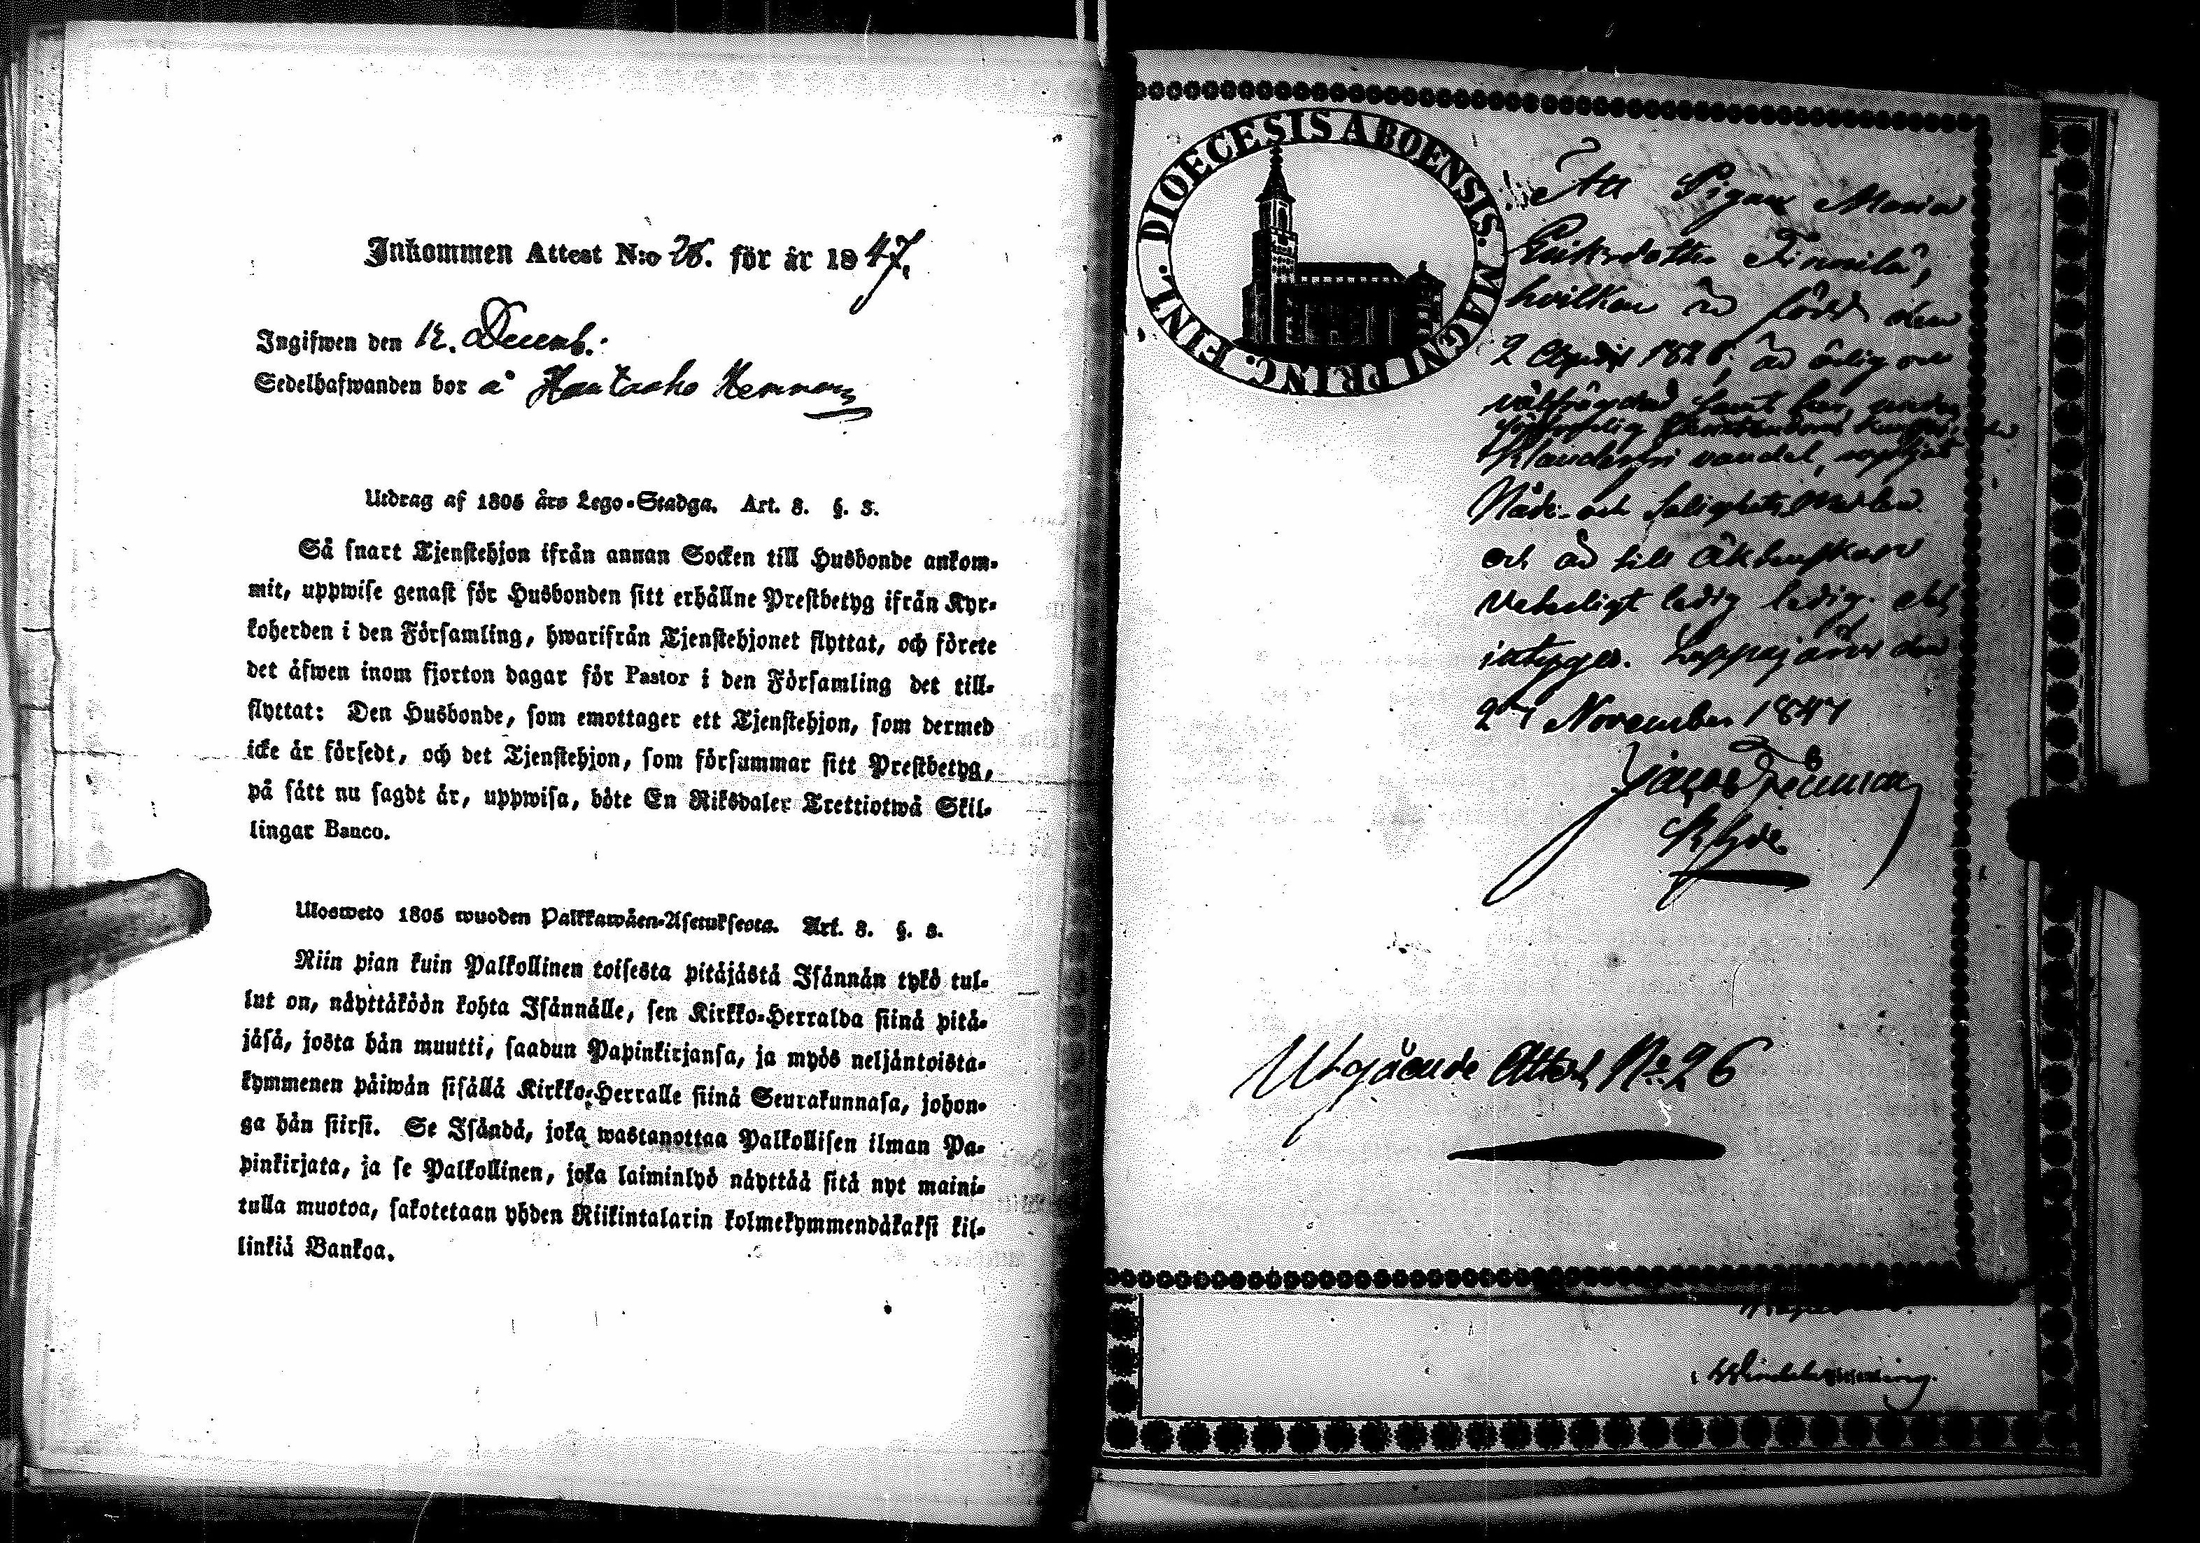 Inkommen Attest N:o 26. för år 1847.
Ingifwen den 12. Decemb.
Sedelhafwanden bor å Hautaoho Hemman
Utdrag af 1805 års Lego-Stadga. Art. 8. §. 3.
Så snart Tjenstehjon ifrån annan Socken till Husbonde ankom-
mit, uppwise genast för Husbonden sitt erhållne Prestbetyg ifrån Kyr-
koherden i den Församling, hwarifrån Tjenstehjonet flyttat, och förete
det äfwen inom fjorton dagar för Pastor i den Församling det till-
flyttat: Den Husbonde, som emottager ett Tjenstehjon, som dermed
icke är försedt, och det Tjenstehjon, som försummar sitt Prestbetyg,
på sätt nu sagdt är, uppwisa, böte En Riksdaler Trettiotwå Skil-
lingar Banco.
Ulosweto 1805 wuoden Palkkawäen-Asetuksesta. Art. 8. §. 3.
Niin pian kuin Palkollinen toisesta pitäjästä Isännän tykö tul-
lut on, näyttäköön kohta Isännälle, sen Kirkko-Herralda siinä pitä-
jäsä, josta hän muutti, saadun Papinkirjansa, ja myös neljäntoista-
kymmenen päiwän sisällä Kirkko-Herralle siinä Seurakunnasa, johon-
ga hän siirsi. Se Isändä, joka wastanottaa Palkollisen ilman Pa-
pinkirjata, ja se Palkollinen, joka laiminlyö näyttää sitä nyt maini-
tulla muotoa, sakotetaan yhden Riikintalarin kolmekymmendäkaksi kil-
linkiä Bankoa.
DIOECESIS ABOENSIS. MAGNI PRINC. FINL.
Att Pigan Maria
Eriksdotter Finnilä,
hvilken är född den
2 April 1828, är ärlig och
välfrägdad samt har, under
Christendoms
klanderfri vandel, nyttjat
Nåde- och Salighets medlen
och är till äktenskap
Veterligt ledig ledig. det
intygas. Lappajärvi den
27 November 1847
Jacob
Utgående Attest No 26